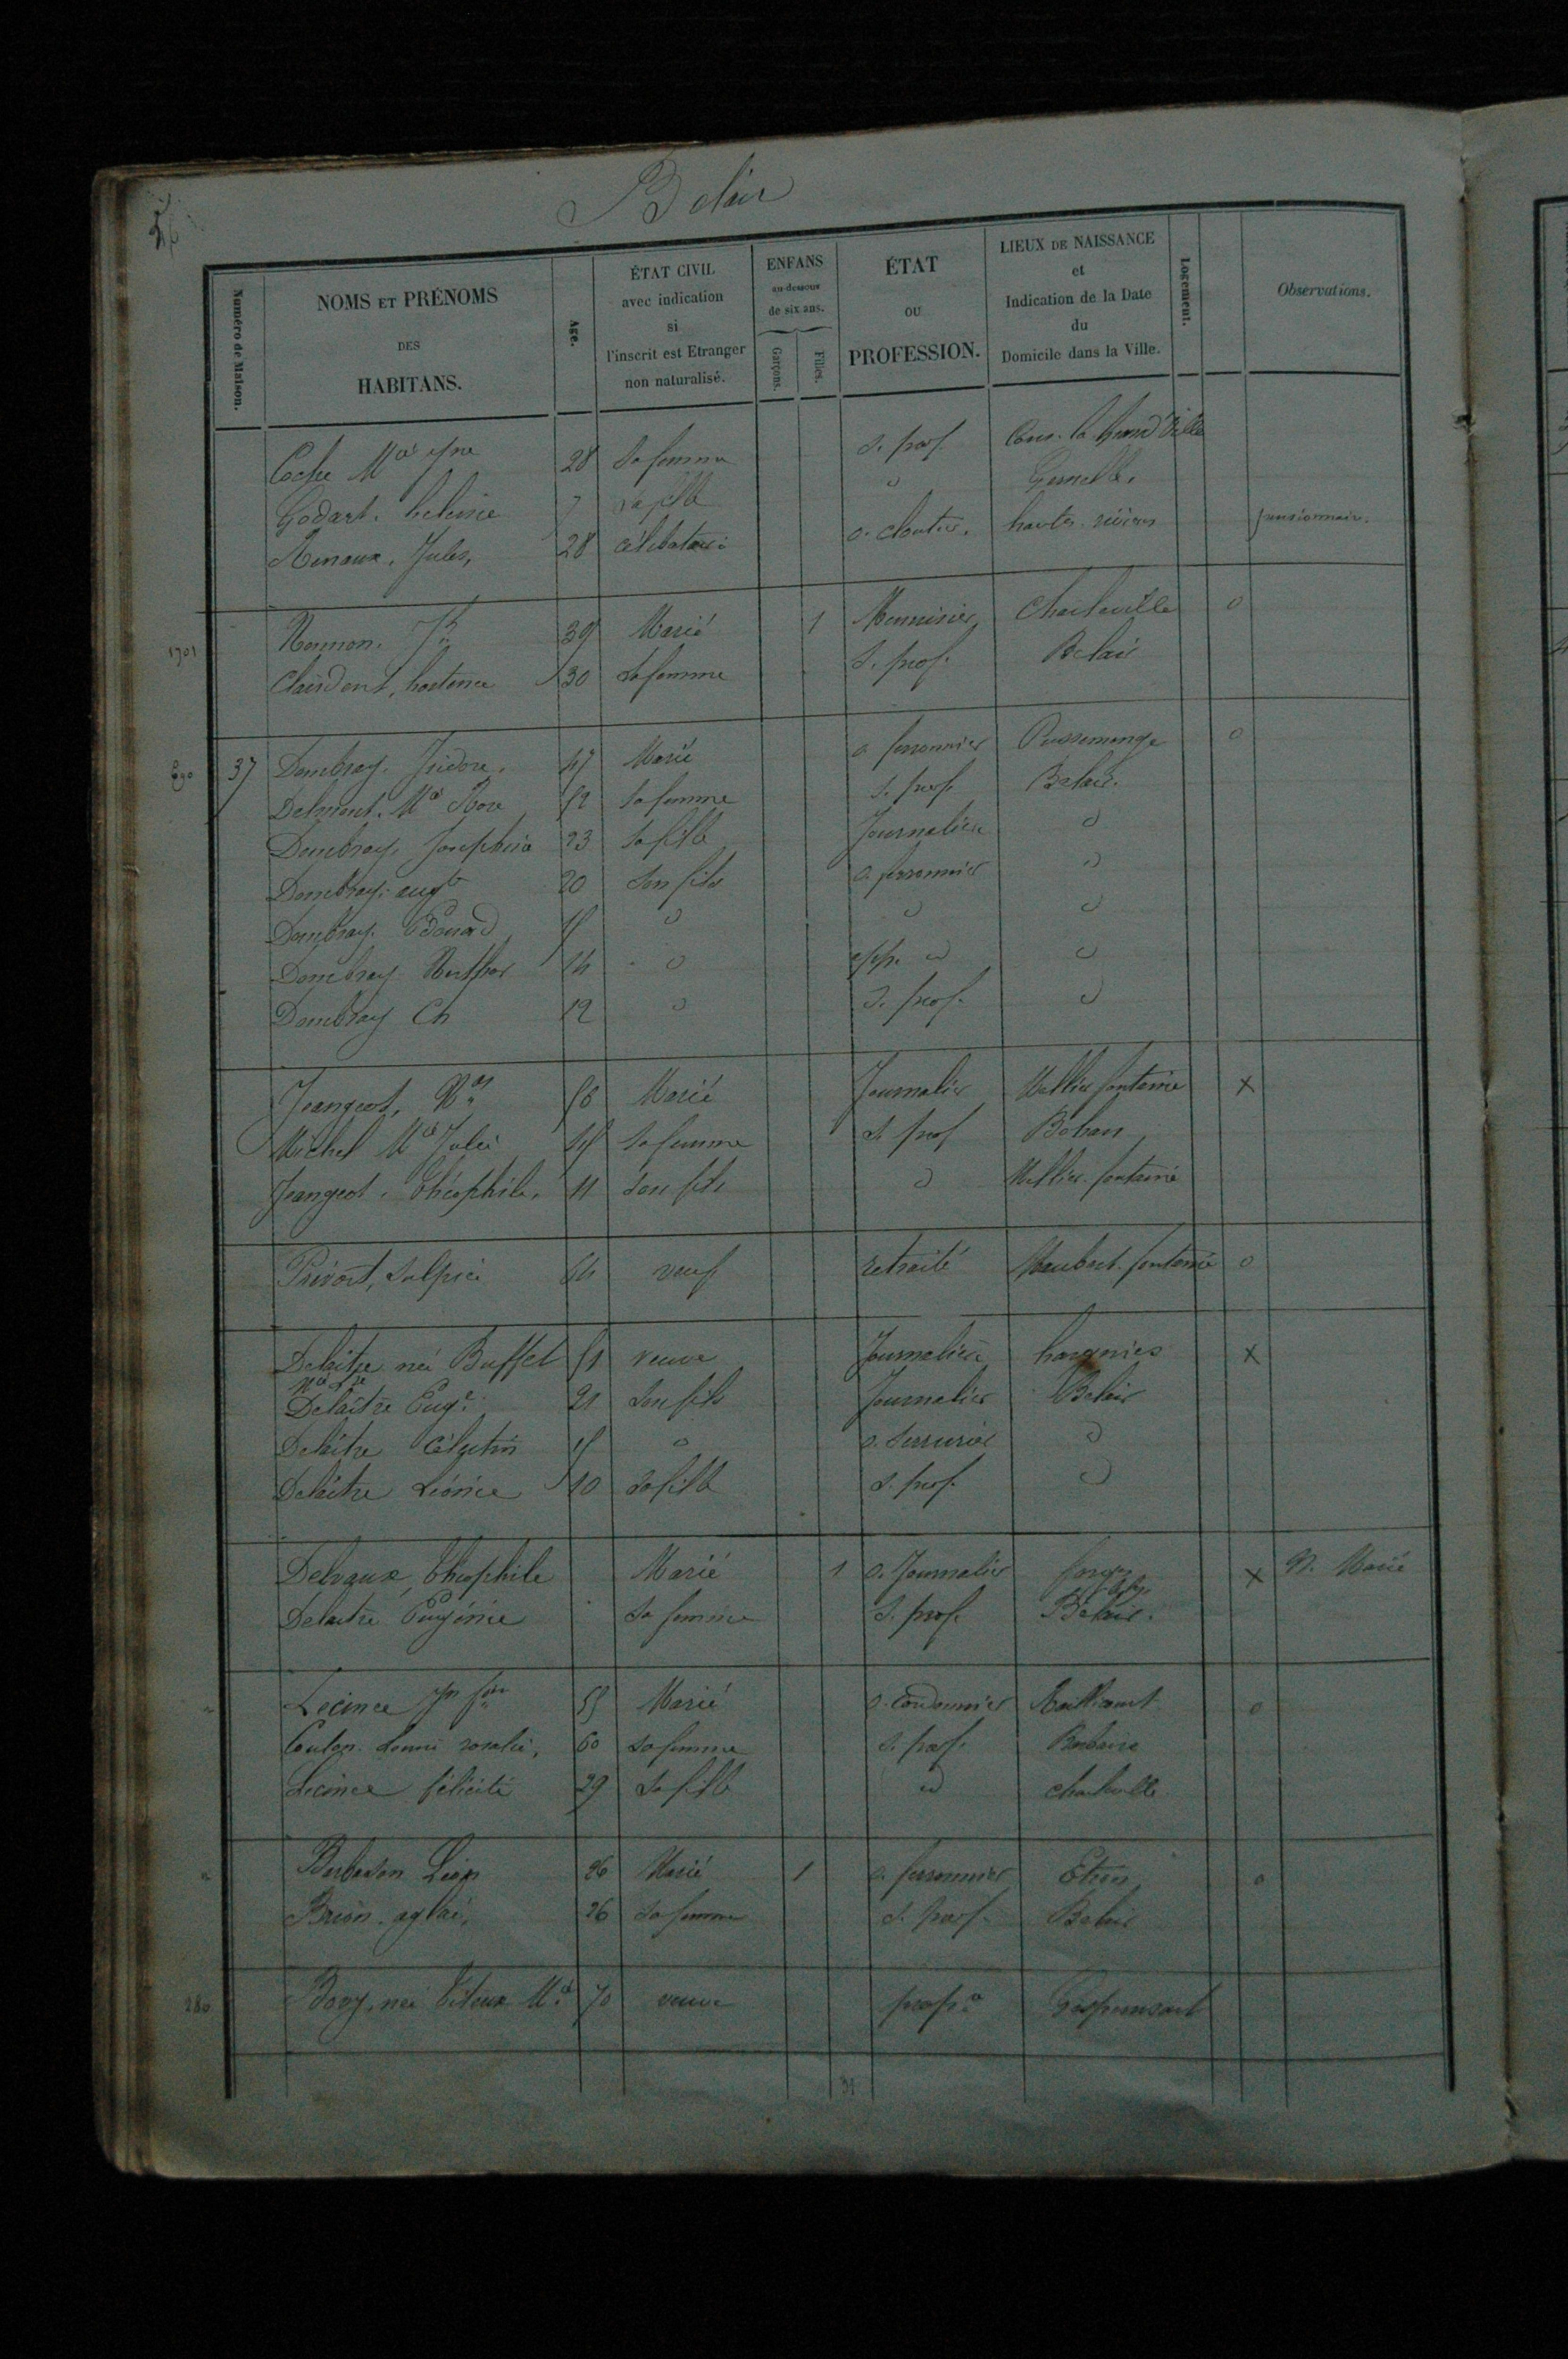 Belair
Numéro de Maison. NOMS ET PRÉNOMS DES HABITANS. Age. ÉTAT CIVIL avec indication si l'inscrit est Etranger non naturalisé. ENFANS au-dessous de six ans. Garçons. Filles. ÉTAT OU PROFESSION. LIEUX DE NAISSANCE et Indication de la Date du Domicile dans la Ville. Logement. Observations.
28 Sa femme S. prof.
Godart. 7 sa fille d Gernelle.
Renaux. Jules, 28 célibataire o. cloutier. hautes rivières pensionnaire.
1701 39 Marié 1 Menuisier Charleville o
Clairdent, hortense 30 Sa femme S. prof. Belair
37 Dombray. Isidore. 47 Marié o. ferronnier Pussemange o
Delmont. Mie Rose 52 Sa femme S. prof. Belair.
Dombray. Josephine 23 Sa fille Journalière d
Dombray. augte 20 Son fils o. ferronnier d
Dombray. Edouard d d d
Dombray 14 d app. d d
Dombray Ch 12 d S. prof. d
Jeangeot, Nas 56 Marié Journalier Mellier fontaine X
Michel Mie Julie Sa femme S. prof Bohan
Jeangeot. théophile. 11 Son fils d Mellier fontaine
Prévost, Sulpice 64 veuf retraité Maubert fontaine o
Delaitre née Buffet 51 veuve Journalière hargnies X
Delaitre Eugne 21 Son fils Journalier Belair
Delaitre Célestin d o. Serrurier d
Delaitre Léonie 10 Sa fille S. prof. d
Delvaux, théophile Marié 1 o. Journalier X N. Marié
Delaitre Eugénie Sa femme S. prof. Belair.
Lecince 55 Marié o. cordonnier o
Coulon. rosalie, 60 Sa femme S. prof.
Lecince félicité 29 Sa fille d charleville
Barbason Léon 26 Marié 1 o. ferronnier o
Brion. aglaé, 26 Sa femme S. prof. Belair
280 née Mie 70 veuve propre Gespunsart